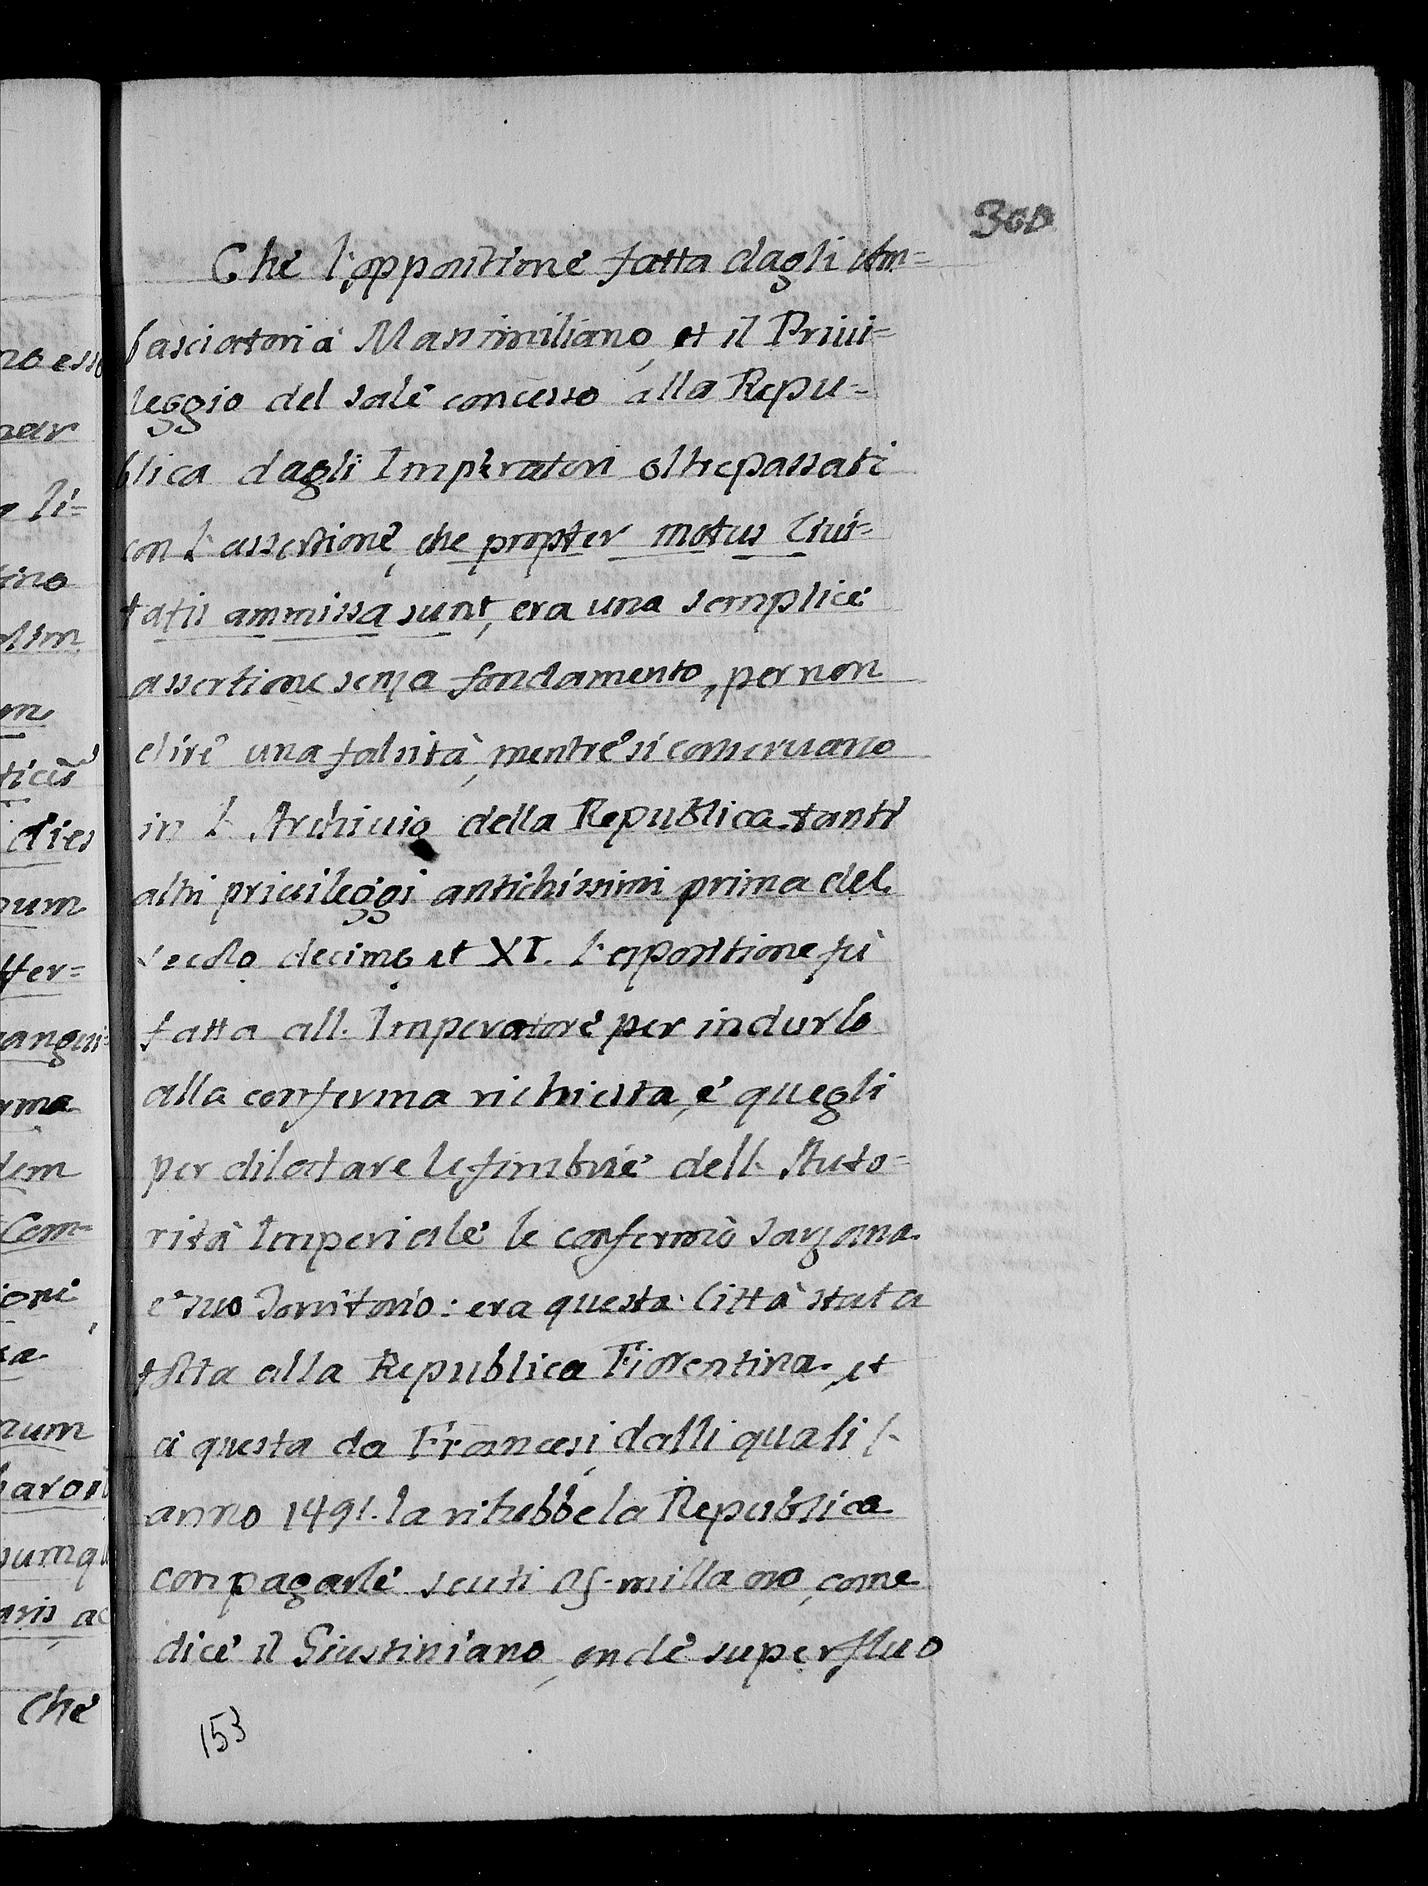 300
Che l'oppositione fatta dagli Am=
basciatori à Massimiliano, et il Priui=
leggio del sale concesso alla Repu=
blica dagli Imperatori oltrepassati
con l'assertione, che propter motus Ciui=
tatis ammissa sunt, era una semplice
assertione senza fondamento, per non
dire una falsità, mentre si conseruano
in l'Archiuio della Republica tanti
altri priuileggi antichissimi prima del
secolo decimo et XI. l'espositione fù
fatta all'Imperatore per indurlo
alla conferma richiesta, e quegli
per dilatare le fimbrie dell'Auto=
rità Imperiale le confermò Sarzana
e suo Territorio: era questa Città stata
tolta alla Republica Fiorentina, et
à questa da Francesi, dalli quali l'
anno 1491. la rihebbe la Republica
con pagarle scuti 25. milla oro, come
dice il Giustiniano, onde superfluo
153
no esse
nar
li=
tino
olim
on
dies
num
ffer=
sangui=
rma
dem
Com=
ioni,
num
aris, ac
Che